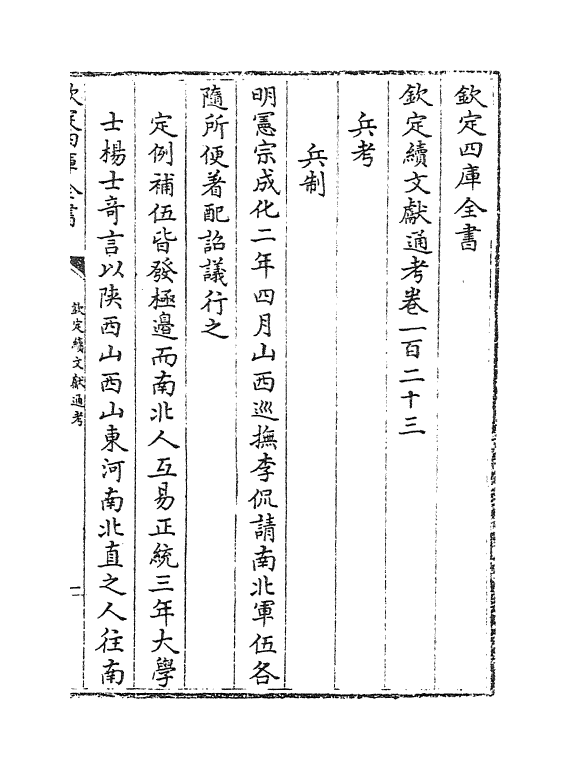 欽定四庫全書
欽定續文獻通考卷一百二十三
兵考
兵制
明憲宗成化二年四月山西巡撫李侃請南北軍伍各
隨所便着配詔議行之
定例補伍皆發極邉而南北人互易正統三年大學
士楊士竒言以陜西山西山東河南北直之人往南
欽定四庫全書
欽定續文獻通考
一